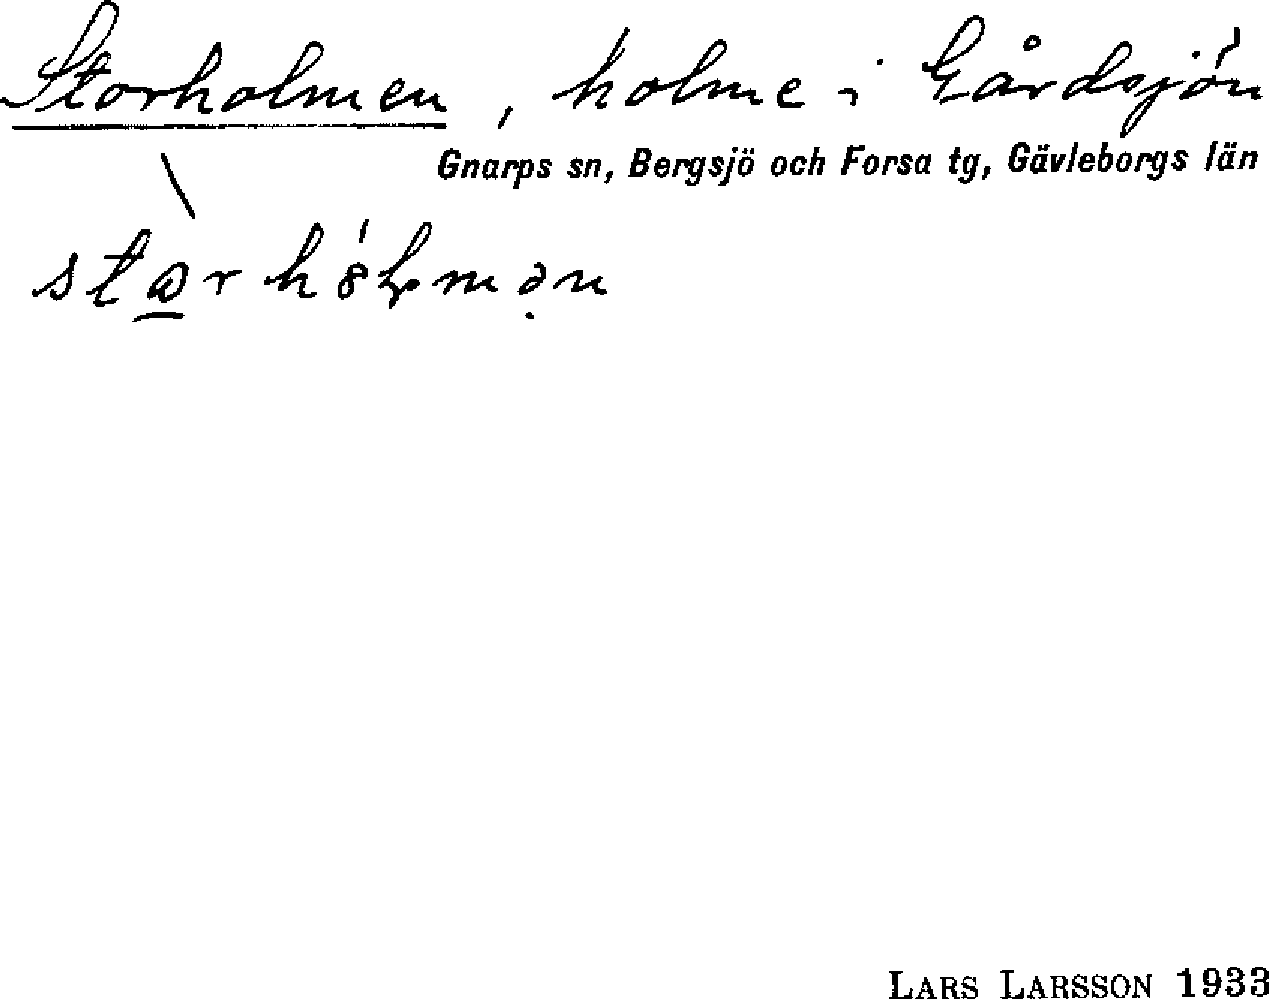 Storholmen, holme i Gårdsjön
Gnarps sn, Bergsjö och Forsa tg, Gävleborgs län
LARS LARSSON 1933